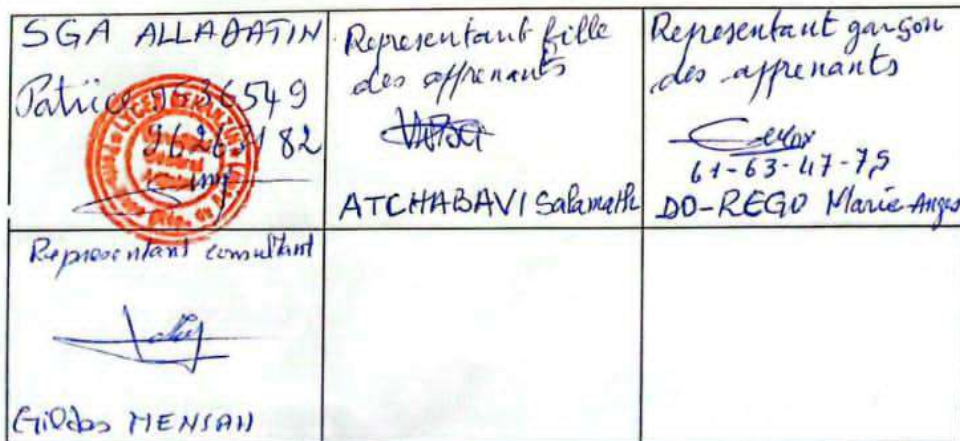 SGA ALLADATIN
Patrice
96263182
Representant fille
des apprenants
ATCHABAVI Salamath
Representant garçon
des apprenants
61-63-47-75
DO-REGO Marie-Anges
Representant consultant
Gildas MENSAH